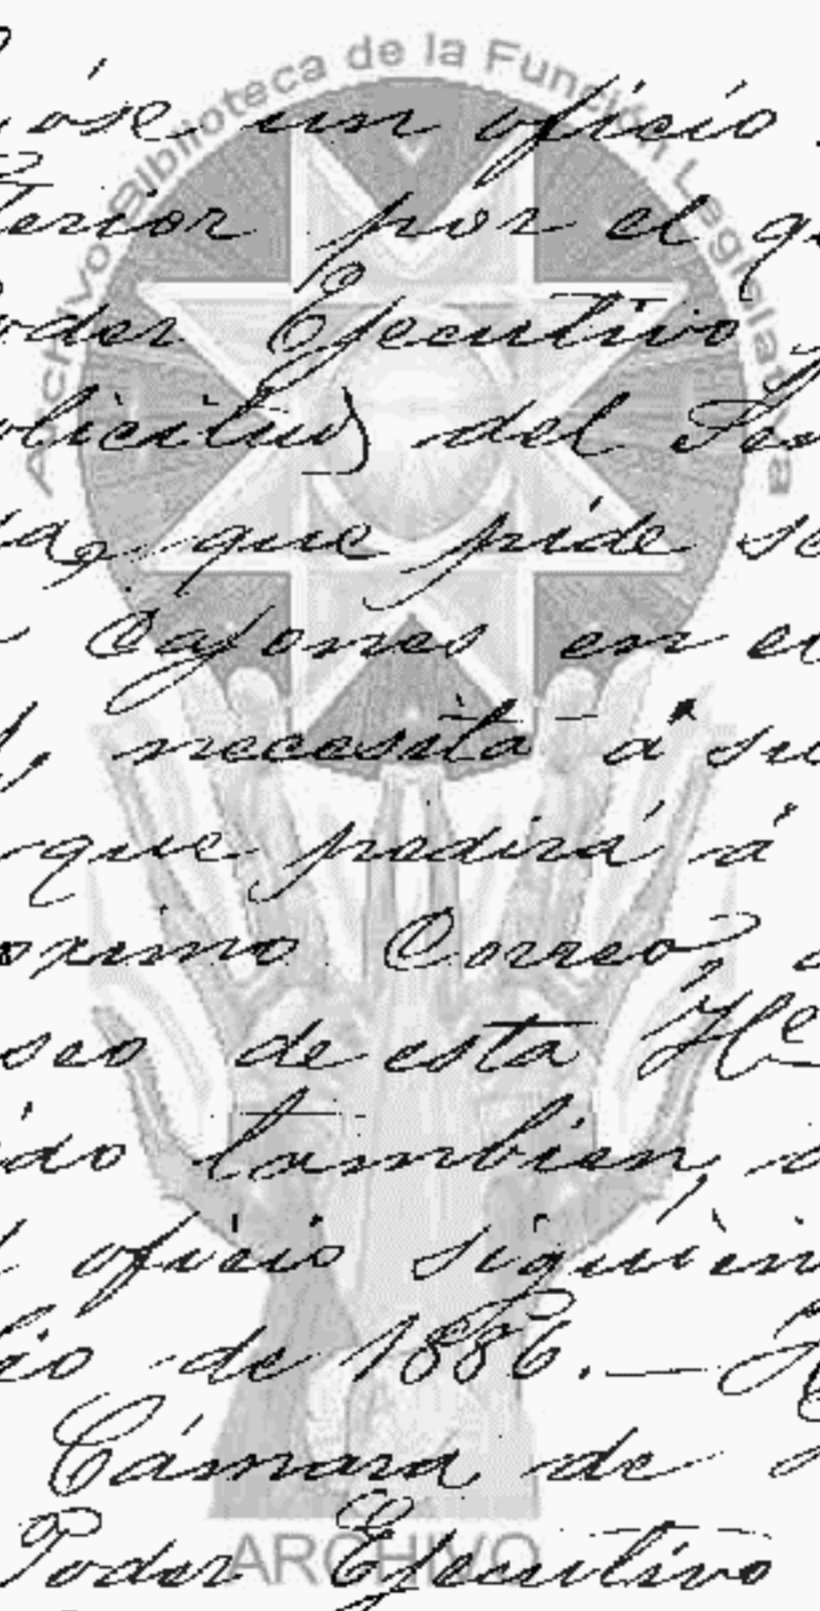 Archivo Biblioteca de la Función Legislativa
óse un oficio
terior por el qu
oder Ejecutivo
olicitud del Se
que pide se
Cajones en el
necesita á su
que pedirá á
oximo Correo,
seo de esta He
ido tambien,
oficio siguien
lio de 1886. —
Cámara de
Poder Ejecutivo
ARCHIVO